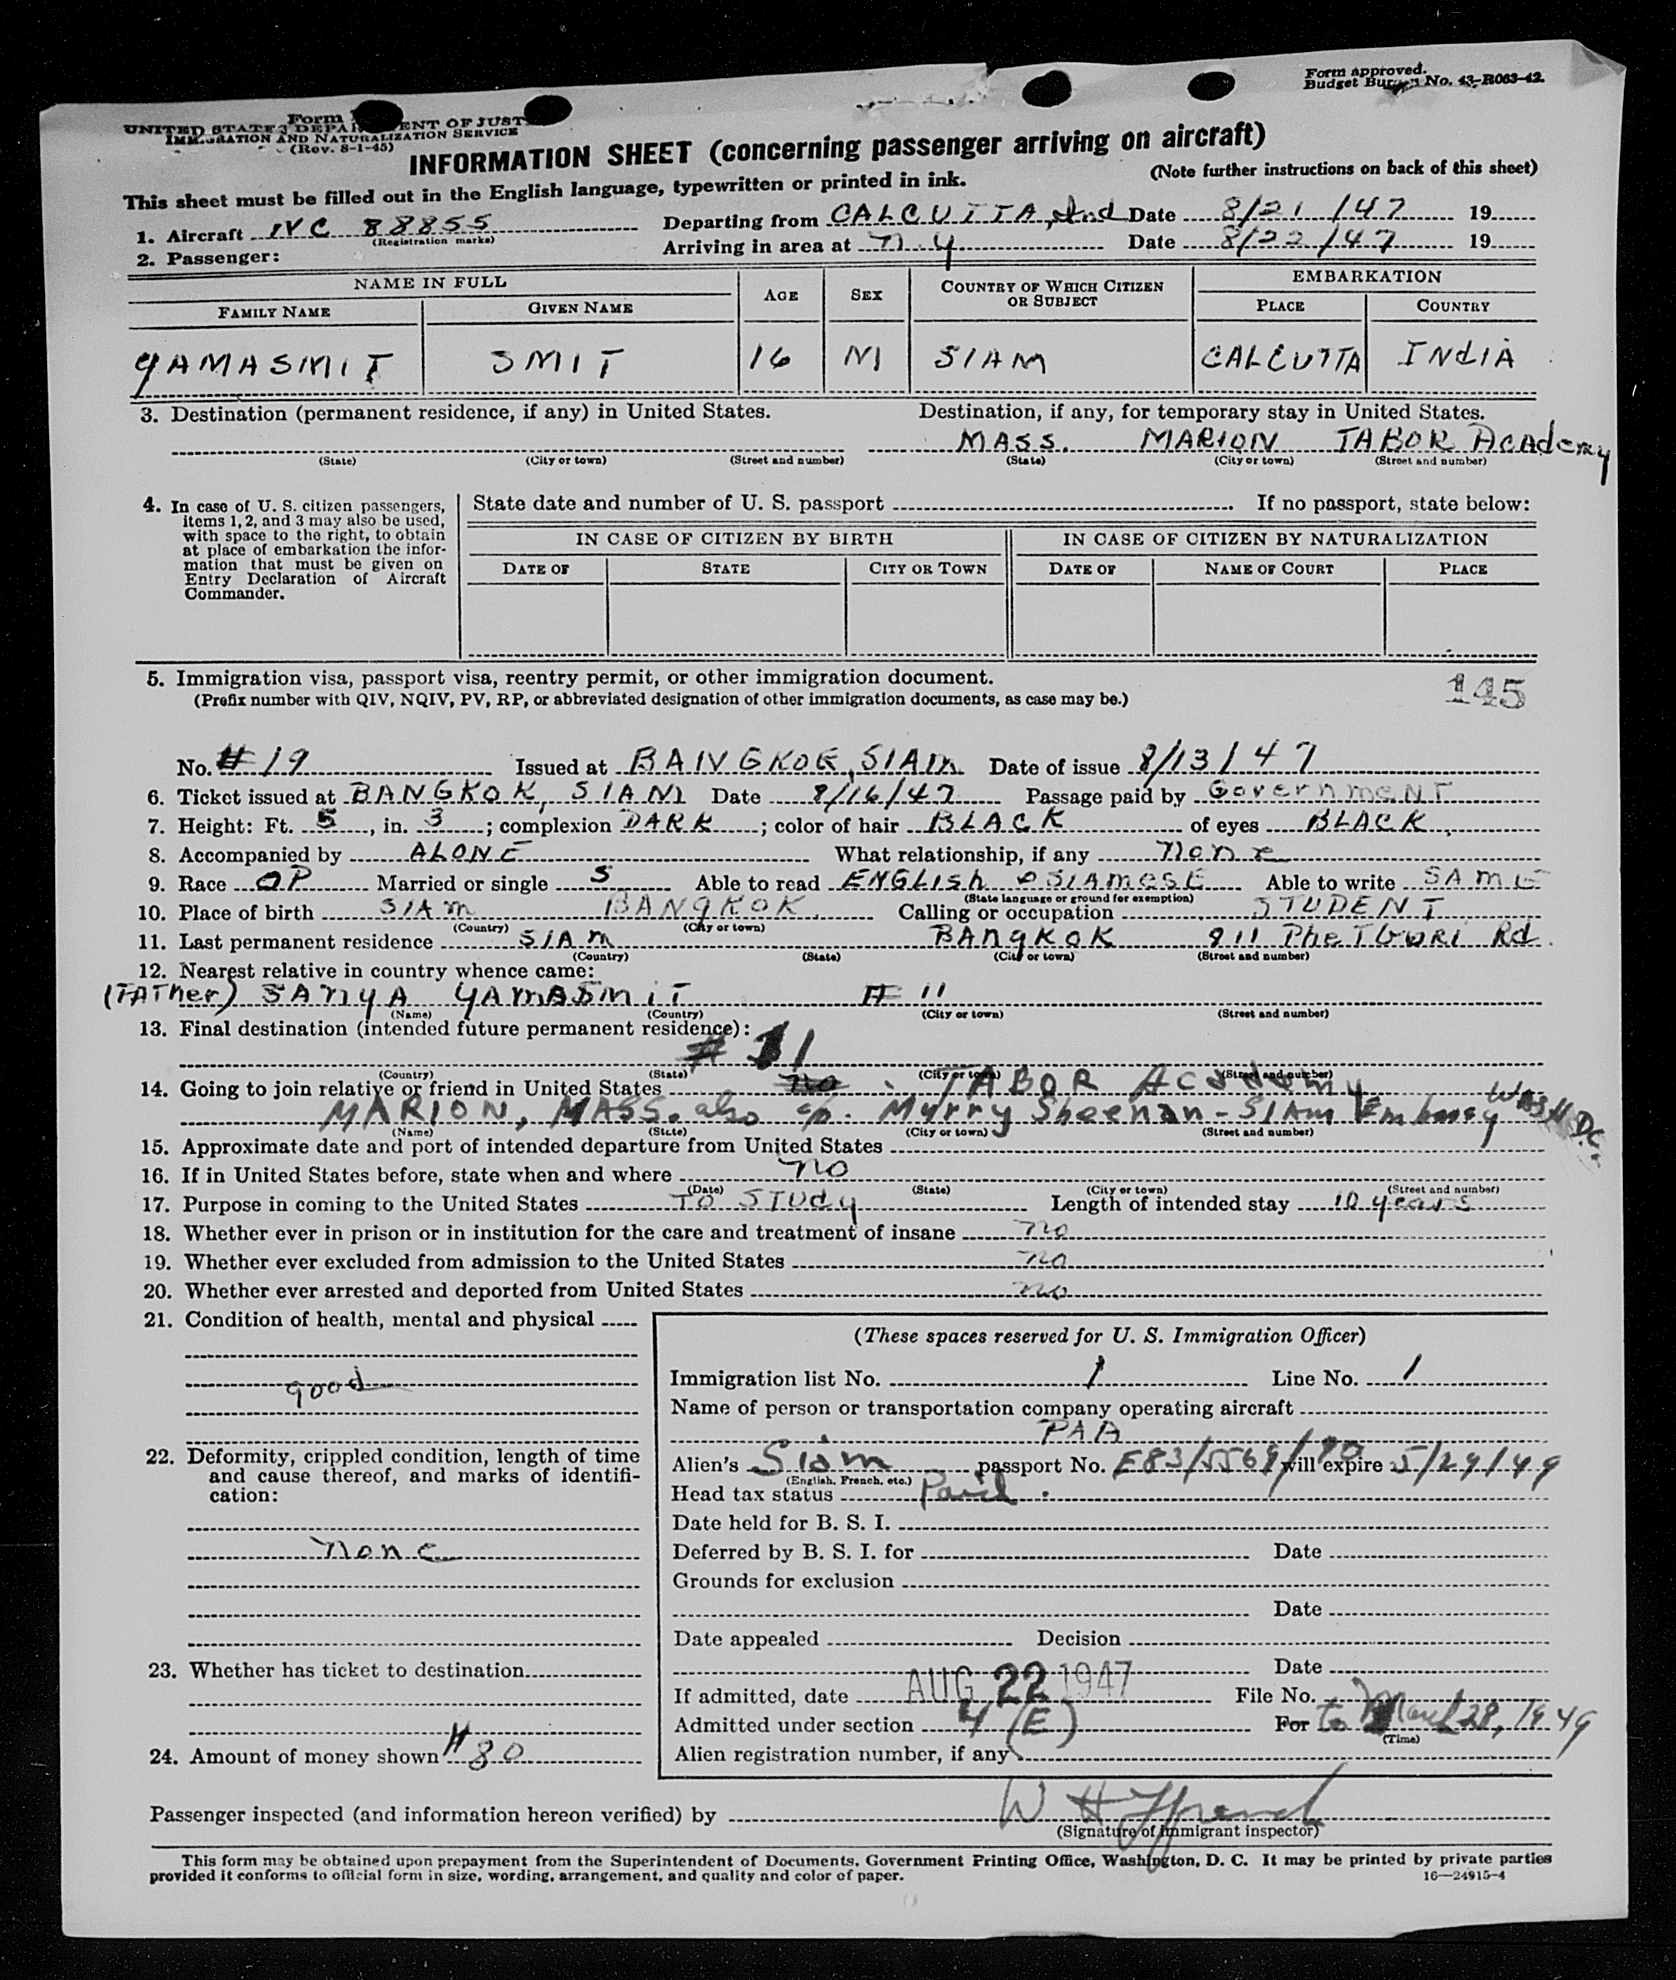 Form approved.
Budget Bureau No. 43-R063-42.
Form
UNITED STATES DEPARTMENT OF JUSTICE
IMMIGRATION AND NATURALIZATION SERVICE
(Rev. 8-1-45)
INFORMATION SHEET (concerning passenger arriving on aircraft)
This sheet must be filled out in the English language, typewritten or printed in ink. (Note further instructions on back of this sheet)
1. Aircraft NC 88855 Departing from CALCUTTA, Ind Date 8/21/47 19
(Registration marks)
2. Passenger: Arriving in area at N.Y Date 8/22/47 19
NAME IN FULL AGE SEX COUNTRY OF WHICH CITIZEN OR SUBJECT EMBARKATION
FAMILY NAME GIVEN NAME PLACE COUNTRY
YAMASMIT SMIT 16 M SIAM CALCUTTA INdIA
3. Destination (permanent residence, if any) in United States. Destination, if any, for temporary stay in United States.
MASS. MARION TABOR ACAdemy
(State) (City or town) (Street and number) (State) (City or town) (Street and number)
4. In case of U. S. citizen passengers, items 1, 2, and 3 may also be used, with space to the right, to obtain at place of embarkation the information that must be given on Entry Declaration of Aircraft Commander.
State date and number of U. S. passport If no passport, state below:
IN CASE OF CITIZEN BY BIRTH IN CASE OF CITIZEN BY NATURALIZATION
DATE OF STATE CITY OR TOWN DATE OF NAME OF COURT PLACE
5. Immigration visa, passport visa, reentry permit, or other immigration document.
(Prefix number with QIV, NQIV, PV, RP, or abbreviated designation of other immigration documents, as case may be.)
145
No. # 19 Issued at BANGKOK, SIAM Date of issue 8/13/47
6. Ticket issued at BANGKOK, SIAM Date 8/16/47 Passage paid by GovernmeNT
7. Height: Ft. 5, in. 3; complexion DARK; color of hair BLACK of eyes BLACK
8. Accompanied by ALONE What relationship, if any none
9. Race OP Married or single S Able to read ENGLISh & SIAMESE Able to write SAME
(State language or ground for exemption)
10. Place of birth SIAM BANgKOK Calling or occupation STUDENT
(Country) (City or town)
11. Last permanent residence SIAM BANgKOK 911 PheTburi Rd.
(Country) (State) (City or town) (Street and number)
12. Nearest relative in country whence came:
(FATher) SANYA YAMASMIT # 11
(Name) (Country) (City or town) (Street and number)
13. Final destination (intended future permanent residence):
# 11
(Country) (State) (City or town) (Street and number)
14. Going to join relative or friend in United States no TABOR Academy
MARION, MASS. also c/o. Myrry Sheenan - SIAM Embassy WASH. D.C.
(Name) (State) (City or town) (Street and number)
15. Approximate date and port of intended departure from United States
16. If in United States before, state when and where no
(Date) (State) (City or town) (Street and number)
17. Purpose in coming to the United States TO STUdy Length of intended stay 10 years
18. Whether ever in prison or in institution for the care and treatment of insane no
19. Whether ever excluded from admission to the United States no
20. Whether ever arrested and deported from United States no
21. Condition of health, mental and physical
good
22. Deformity, crippled condition, length of time and cause thereof, and marks of identification:
none
23. Whether has ticket to destination
24. Amount of money shown # 80
(These spaces reserved for U. S. Immigration Officer)
Immigration list No. 1 Line No. 1
Name of person or transportation company operating aircraft
PAA
Alien's Siam passport No. E83/5569/90 will expire 5/29/49
(English, French, etc.)
Head tax status Paid.
Date held for B. S. I.
Deferred by B. S. I. for Date
Grounds for exclusion
Date
Date appealed Decision
Date
If admitted, date AUG 22 1947 File No.
Admitted under section 4 (E) For to March 29, 1949
(Time)
Alien registration number, if any
Passenger inspected (and information hereon verified) by W H Ffrench
(Signature of immigrant inspector)
This form may be obtained upon prepayment from the Superintendent of Documents, Government Printing Office, Washington, D. C. It may be printed by private parties
provided it conforms to official form in size, wording, arrangement, and quality and color of paper. 16—24915-4